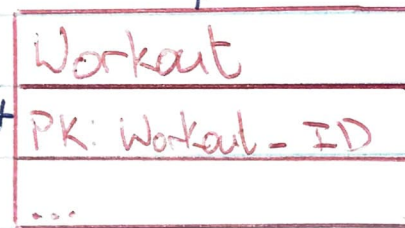 Workout
PK: Workout_ID
...